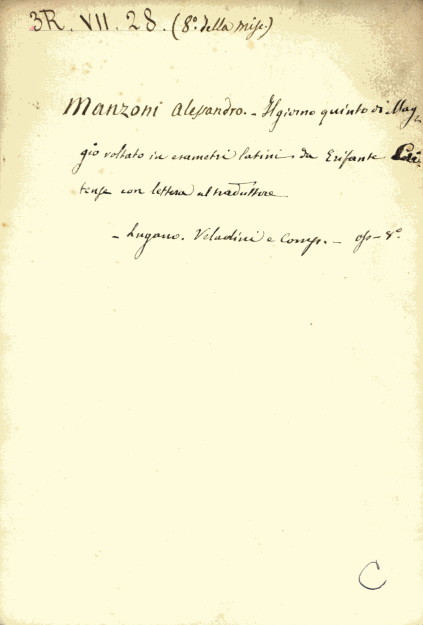 3R. VII. 28. (8.º della misc.)
Manzoni Alessandro. - Il giorno quinto di Mag
gio voltato in esametri latini da Erifante Eri
tense con lettera al traduttore
- Lugano. Veladini e Comp. - 8.º
C